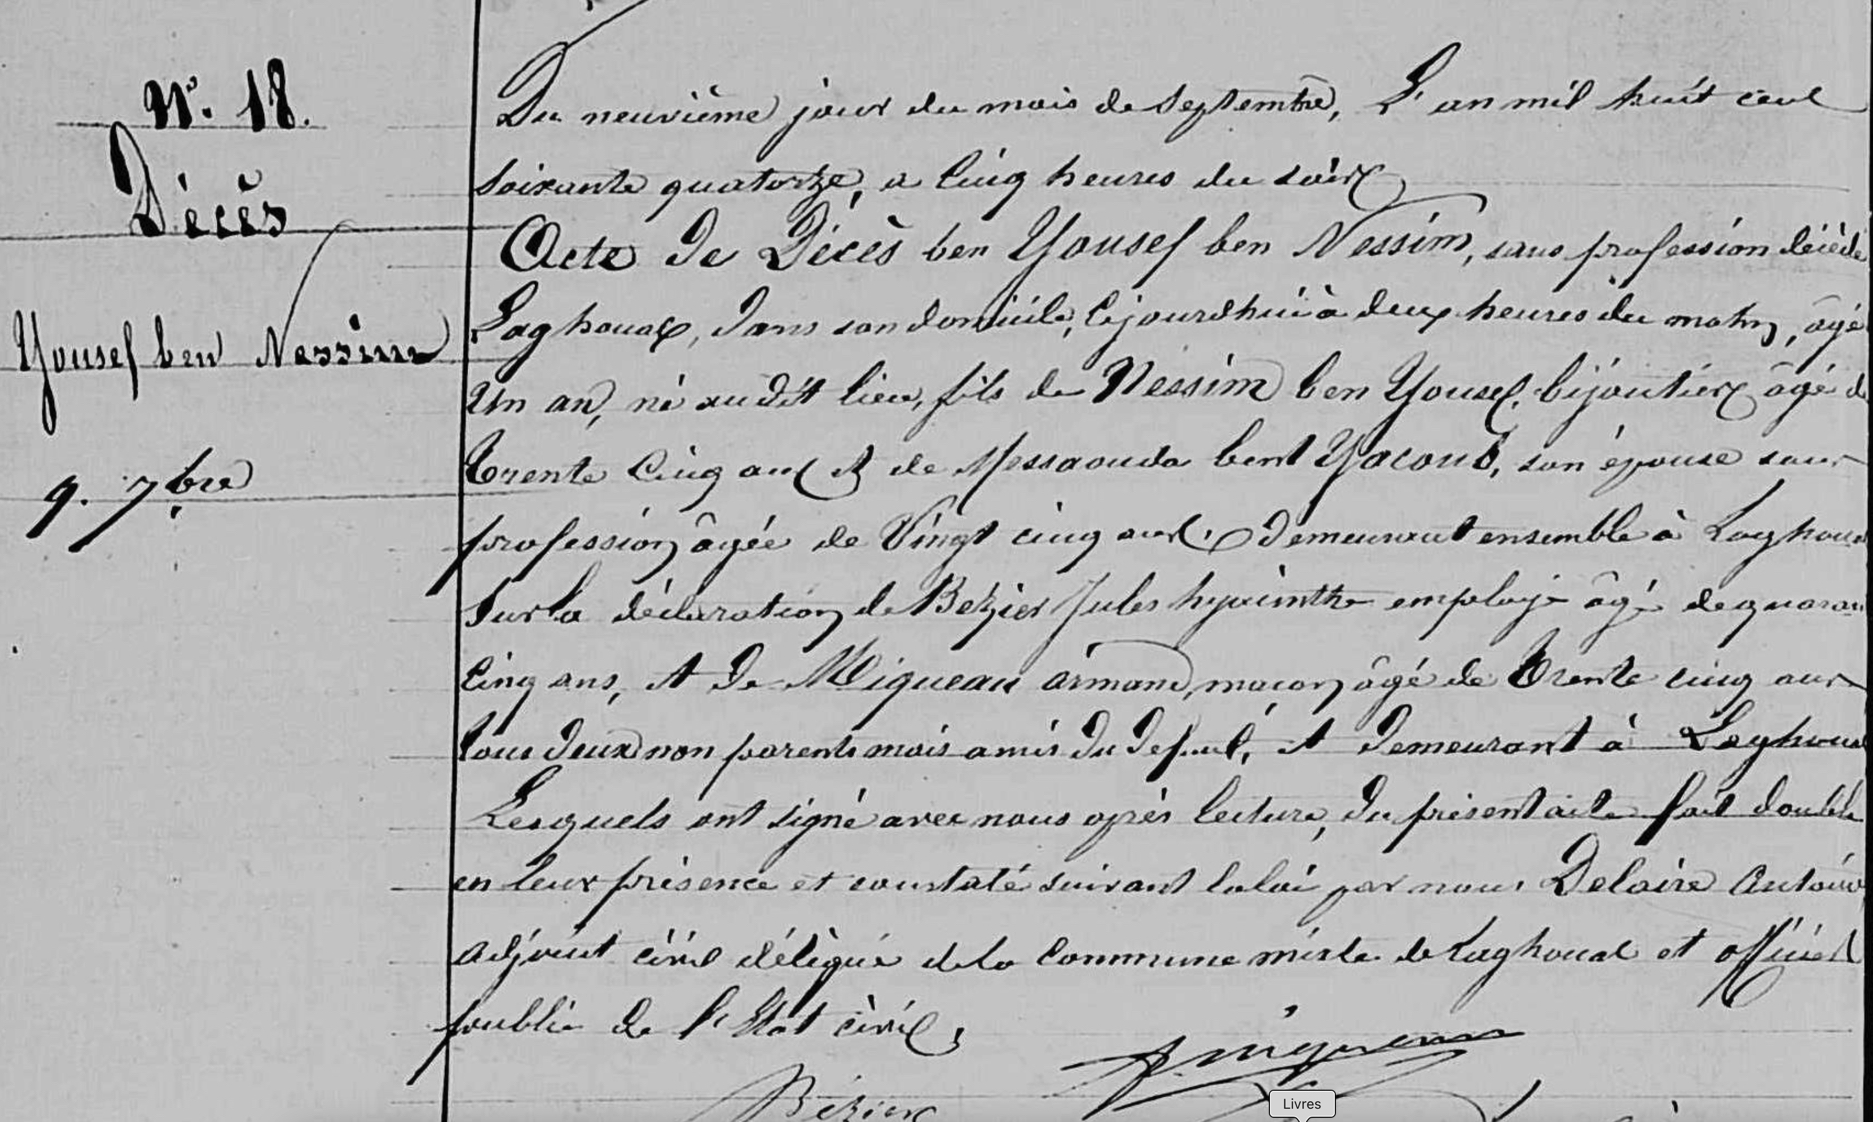 N° 18.
Décès
Yousef ben Nessim
9. 7bre
Du neuvième jour du mois de Septembre, L'an mil huit cent
soixante quatorze, a Cinq heures du soir
Acte De Décès ben Yousef ben Nessim, sans profession décédé
Laghouat, dans son domicile, Cejourdhui à deux heures du matin, âgé
Un an, né audit lieu, fils de Nessim ben Yousef, bijoutier âgé de
Trente Cinq ans et de Messaouda bent Yacoub, son épouse sans
profession âgée de Vingt cinq ans, Demeurant ensemble à Laghouat
Sur la déclaration de Bezier Jules hyacinthe employé âgé de quaran
Cinq ans, et De Miqueau armand, maçon âgé de Trente cinq ans
tous deux non parents mais amis du defunt, et Demeurant à Laghouat
Lesquels ont signé avec nous après lecture, du présent acte fait double
en leur présence et constaté suivant la loi par nous Delaire Antoine
adjoint civil délégué de la Commune mixte de Laghouat et officier
public de l'Etat civil,
Miqueau
Bézier
Livres